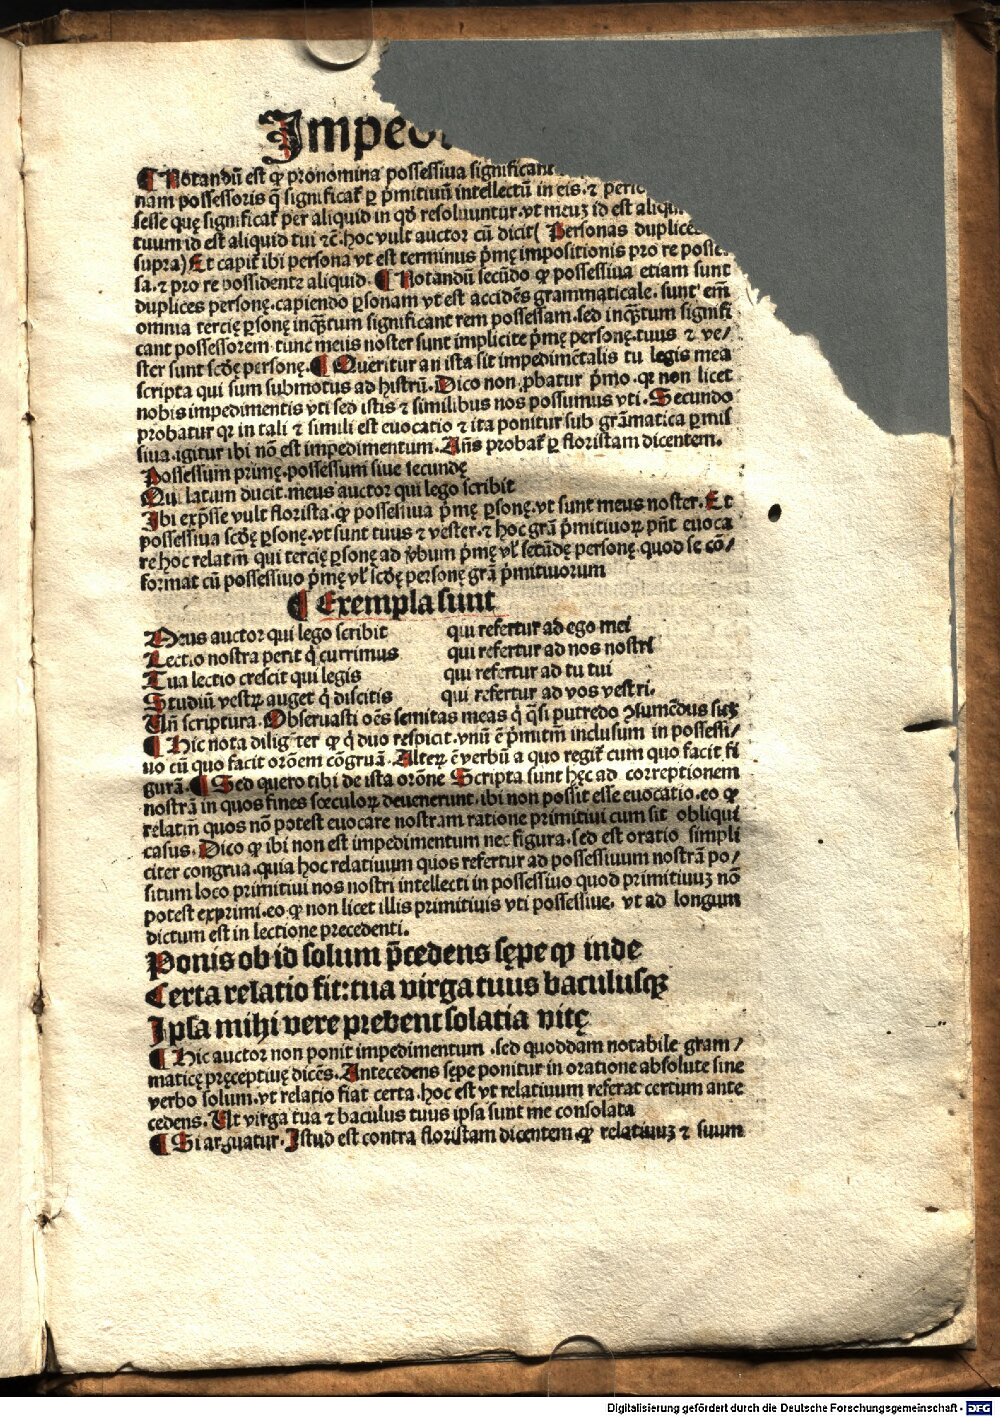 Impedi
¶ Notandū est ꝙ pronomina possessiua significant
nam possessoris q̄ significat̄ ꝑ p̄mitiuū intellectū in eis. ⁊ peric
sesse quę significat̄ per aliquid in qď resoluuntur. vt meuꝫ id est aliqu
tuum id est aliquid tui ⁊c̄. hoc vult auctor cū dicit( Personas duplices
supra) Et capit̄ ibi persona vt est terminus p̄mę impositionis pro re posse.
sa. ⁊ pro re possidente aliquid. ¶ Notandū secūdo ꝙ possessiua etiam sunt
duplices personę. capiendo ꝑsonam vt est accidēs grammaticale. sunt em̄
omnia tercię ꝑsonę inqꝫtum significant rem possessam. sed inqꝫtum signifi
cant possessorem tunc meus noster sunt implicite p̄mę personę. tuus ⁊ ve/
ster sunt scďę personę. ¶ Queritur an ista sit impedimētalis tu legis mea
scripta qui sum submotus ad histrū. Dico non ꝓbatur p̄mo. qꝛ non licet
nobis impedimentis vti sed istis ⁊ similibus nos possumus vti. Secundo
probatur qꝛ in tali ⁊ simili est euocatio ⁊ ita ponitur sub grāmatica ꝑmis
siua. igitur ibi nō est impedimentum. An̄s probat̄ ꝑ floristam dicentem.
Possessum primę. possessum siue secundę
Qui latum ducit. meus auctor qui lego scribit
Ibi exp̄sse vult florista. ꝙ possessiua p̄mę ꝑsonę. vt sunt meus noster. Et
possessiua scďę ꝑsonę. vt sunt tuus ⁊ vester. ⁊ hoc grā p̄mitiuoꝝ pn̄t euoca
re hoc relatm̄ qui tercię ꝑsonę ad v̄bum p̄mę vl̄ secūdę personę. quod se cō/
format cū possessiuo p̄mę vl̄ scďę personę grā p̄mitiuorum
¶ Exempla sunt
Meus auctor qui lego scribit qui refertur ad ego mei
Lectio nostra perit q̇ currimus qui refertur ad nos nostri
Tua lectio crescit qui legis qui refertur ad tu tui
Studiū vestꝝ auget q̇ discitis qui refertur ad vos vestri.
Un̄ scriptura. Obseruasti oēs semitas meas q̇ q̄si putredo ꝯsumēdus suꝫ
¶ Hic nota diligēter ꝙ q̇ duo respicit. vnū ē p̄mitm̄ inclusum in possessi/
uo cū quo facit orōem cōgruā. Alteꝝ ē verbū a quo regit̄ cum quo facit fi
gurā. ¶ Sed quero tibi de ista orōne Scripta sunt hęc ad correptionem
nostrā in quos fines sœculoꝝ deuenerunt. ibi non possit esse euocatio. eo ꝙ
relatm̄ quos nō potest euocare nostram ratione primitiui cum sit obliqui
casus. Dico ꝙ ibi non est impedimentum nec figura. sed est oratio simpli
citer congrua. quia hoc relatiuum quos refertur ad possessiuum nostrā po/
situm loco primitiui nos nostri intellecti in possessiuo quod primitiuuꝫ nō
potest exprimi. eo ꝙ non licet illis primitiuis vti possessiue. vt ad longum
dictum est in lectione precedenti.
Ponis ob id solum p̄cedens sępe ꝙ inde
Certa relatio fit: tua virga tuus baculusqꝫ
Ipsa mihi vere prebent solatia vitę
¶ Hic auctor non ponit impedimentum. sed quoddam notabile gram/
maticę pręceptiuę dicēs. Antecedens sępe ponitur in oratione absolute sine
verbo solum. vt relatio fiat certa. hoc est vt relatiuum referat certum ante
cedens. Ut virga tua ⁊ baculus tuus ipsa sunt me consolata
¶ Si arguatur. Istud est contra floristam dicentem. ꝙ relatiuuꝫ ⁊ suum
Digitalisierung gefördert durch die Deutsche Forschungsgemeinschaft - DFG